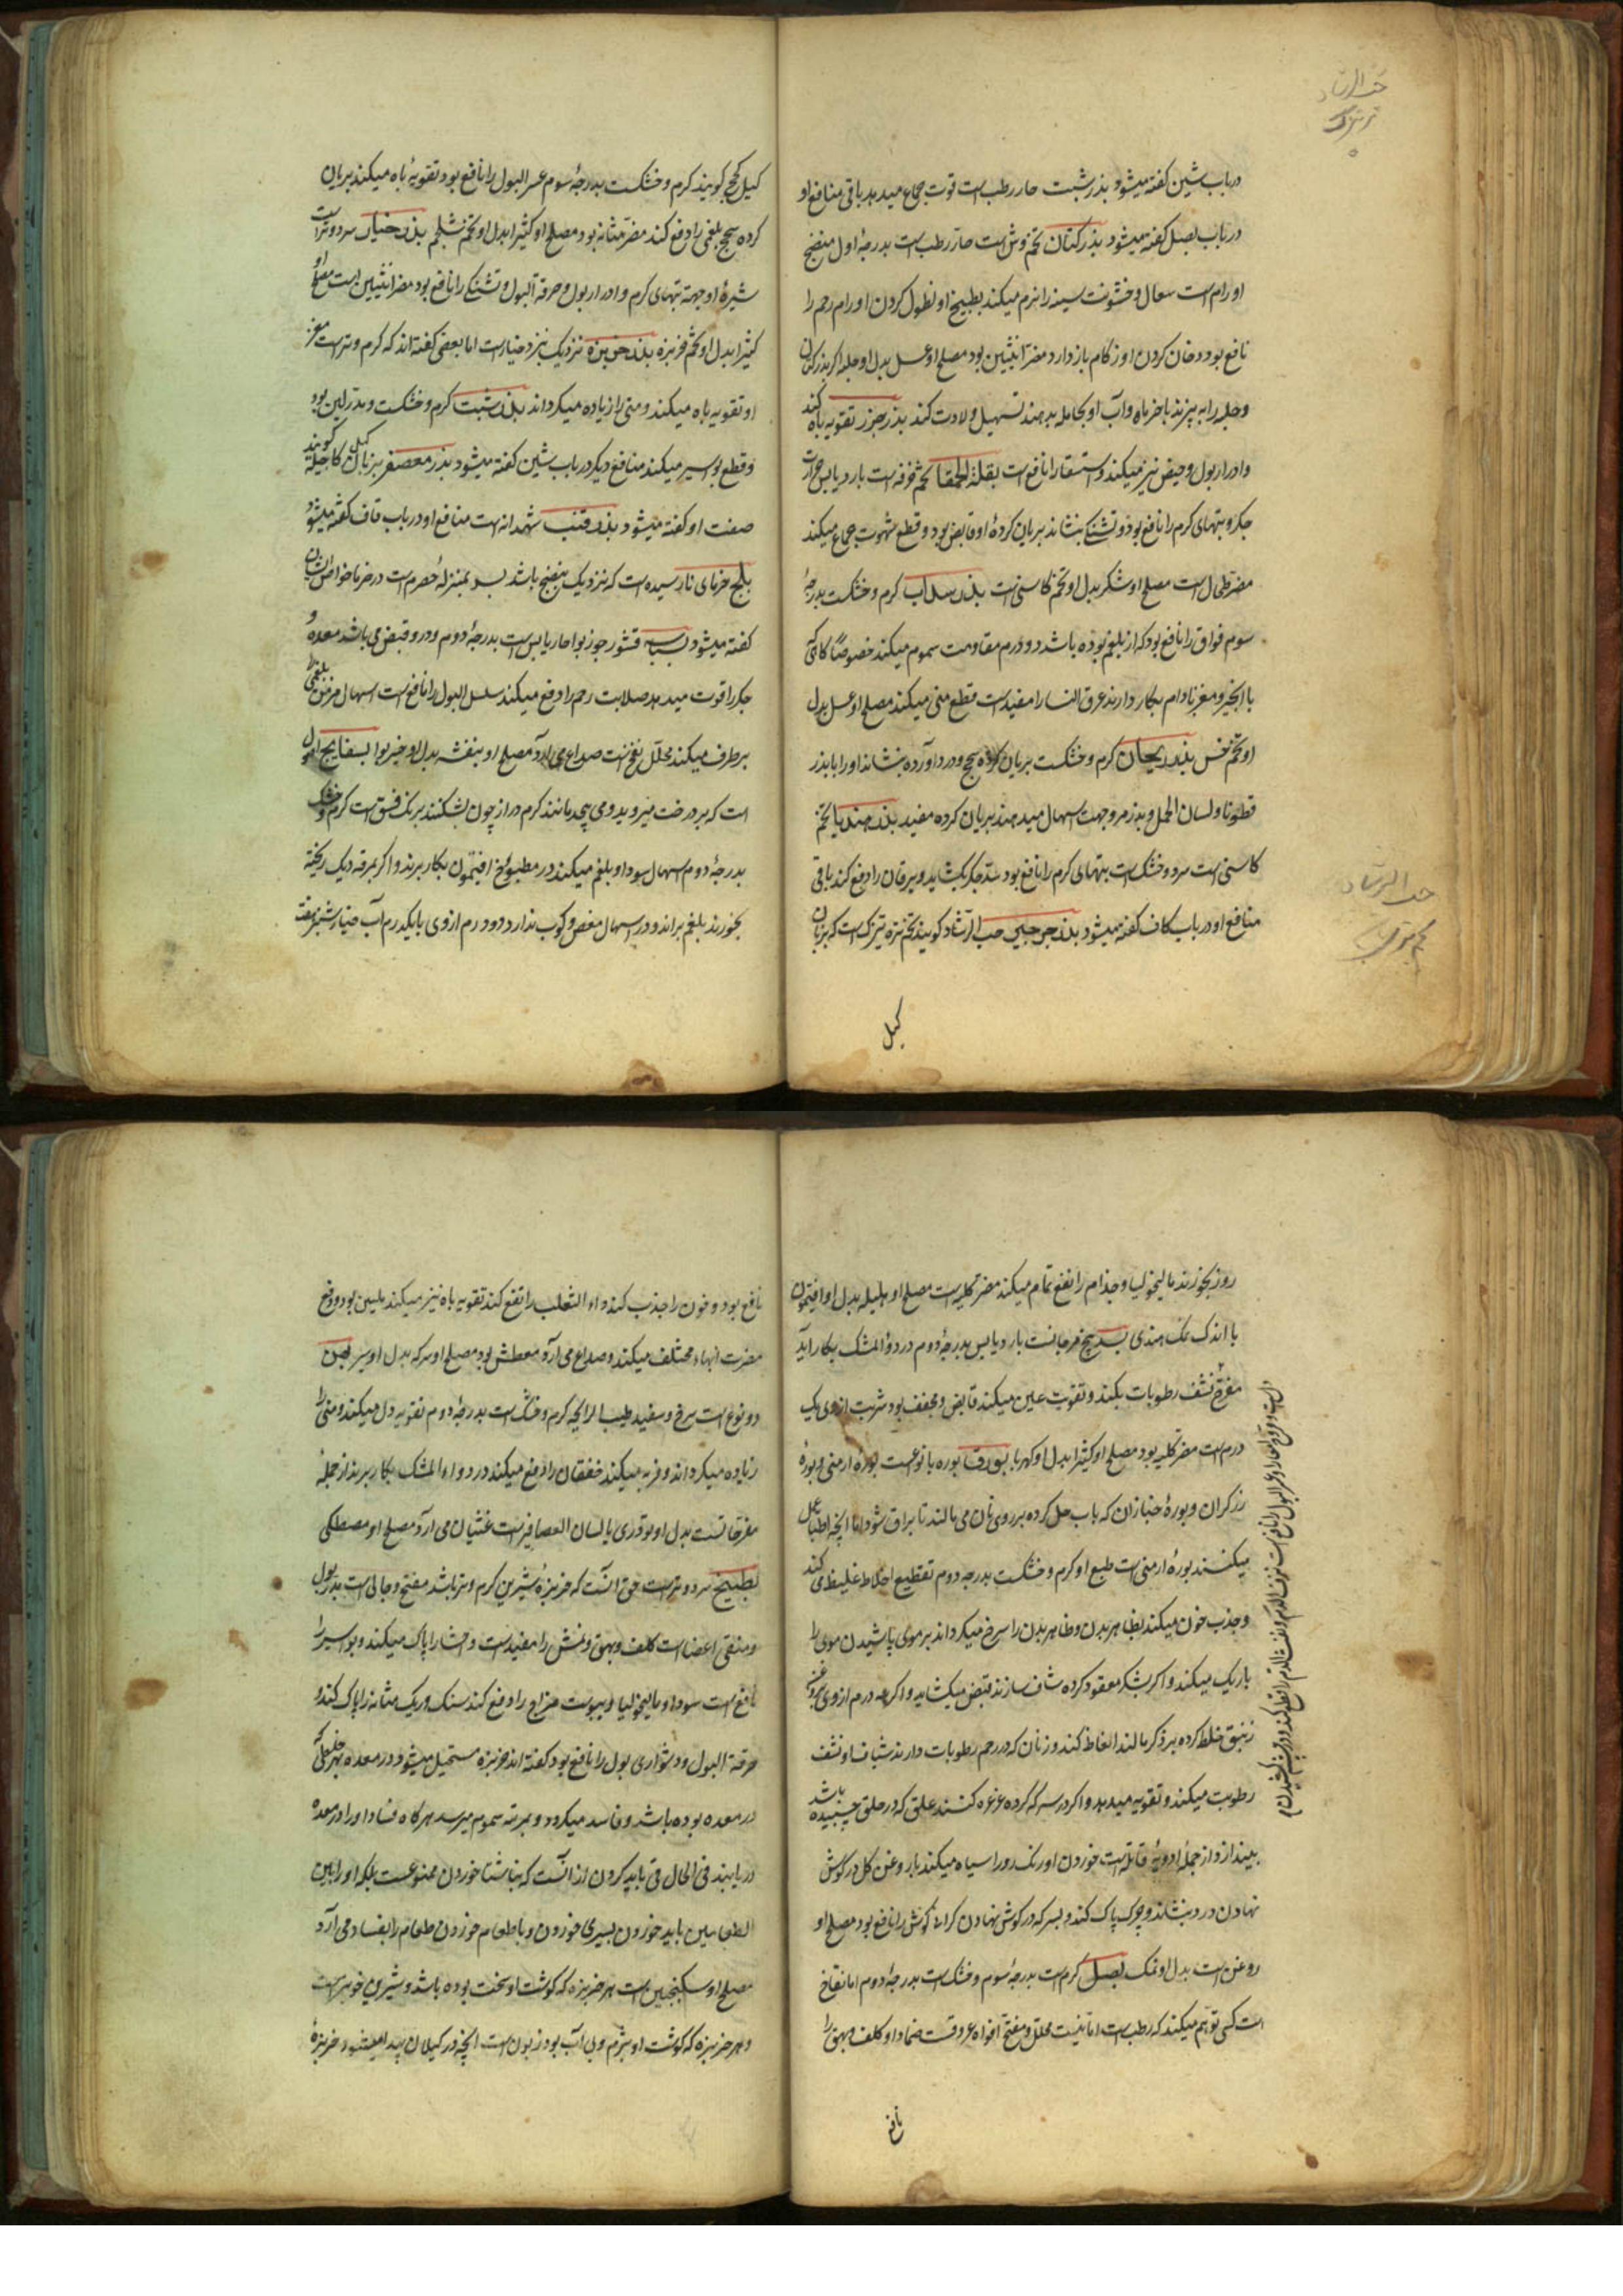 حب الرشاد
تره تیزک
در باب شین کفته میشود بذر شبت حار رطب است قوت جماع میدهد باقی منافع او
در باب بصل کفته میشود بذر کتان تخم وش است حار رطب است بدرجهٔ اول منضج
اورام است سعال و خشونت سینه را نرم میکند بطبیخ او نطول کردن اورام رحم را
نافع بود دخان کردن او زکام باز دارد مضر انثیین بود مصلح او عسل بدل او حلبه اکر بذر کتان
و حلبه را به پزند با خرماه و آب او بحامله بدهند تسهیل ولادت کند بذر جزر تقویه باه کند
و ادرار بول و حیض نیز میکند و استسقا را نافع است بقلة الحمقا تخم خرفه است بارد یابس حرارت
جکر و تبهای کرم را نافع بود و تشنکی بنشاند بریان کردهٔ او قابض بود و قطع شهوت جماع میکند
مضر طحال است مصلح او شکر بدل او تخم کاسنی است بذر سداب کرم و خشکست بدرجهٔ
سوم فواق را نافع بود که از بلغم بوده باشد دو درم مقاومت سموم میکند خصوصا کاهی که
با انجیر و مغز بادام بکار دارند عرق النسا را مفید است قطع منی میکند مصلح او عسل بدل
او تخم خس بذر ریحان کرم و خشکست بریان کرده سحج و درد آورده بنشاند او را با بذر
قطونا و لسان الحمل و بذر مرو جهت اسهال میدهند بریان کرده مفید بذر هندبا تخم
کاسنی است سرد و خشک است تبهای کرم را نافع بود سده جکر بکشاید و یرقان را دفع کند باقی
منافع او در باب کاف کفته میشود بذر جرجیر حب الرشاد کویند تخم تره تیزک است که بزبان
حب الرشاد
کیل
کیل کحج کویند کرم و خشکست بدرجهٔ سوم عسر البول را نافع بود تقویهٔ باه میکند بریان
کرده سحج بلغمی را دفع کند مضر مثانه بود مصلح او کثیرا بدل او تخم شلجم بذر خیار سرد و تر است
شیرهٔ او جهته تبهای کرم و ادرار بول و حرقة البول و تشنکی را نافع بود مضر انثیین است مصلح او
کثیرا بدل او تخم خربزه بذر خربزه نزدیک ببزر خیار است اما بعضی کفته‌اند که کرم و تر است مغز
او تقویه باه میکند و منی را زیاده میکرداند بذر شبت کرم و خشکست و مدر لبن بود
و قطع بواسیر میکند منافع دیکر در باب شین کفته میشود بذر معصفر بزبان کیل کاجیله کویند
صفت او کفته میشود بذر قنب شهدانه است منافع او در باب قاف کفته میشود
بلح خرمای نارسیده است که نزدیک بنضج باشد بسر بمنزله حصرم است در خرما خواص ایشان
کفته میشود بسباسه قشور جوز بوا حار یابس است بدرجهٔ دوم و درو قبض می باشد معده و
جکر را قوت میدهد صلابت رحم را دفع میکند سلس البول را نافع است اسهال مزمن بلغمی
برطرف میکند محلل نفخ است صداع می آرد مصلح او بنفشه بدل او خیر بوا بسفایج
است که بر درخت میروید و می پیچد مانند کرم دراز چون بشکنند برنک فستق است کرم و خشک
بدرجهٔ دوم اسهال سودا و بلغم میکند در مطبوخ افتیمون بکار برند و اکر بمرقه دیک ریخته
بخورند بلغم براند و در اسهال مغص و کرب ندارد دو درم از وی با یکدرم آب خیار شنبر هفت
روز بخورند مالیخولیا و جذام را نفع تمام میکند مضر کلیه است مصلح او هلیله بدل او افتیمون
با اندک نمک هندی بسد بیخ مرجانست بارد یابس بدرجهٔ دوم در دواء المشک بکار آید
مفرح نشف رطوبات بکند و تقویت عین میکند قابض و مجفف بود شربت از وی یک
درم است مضر کلیه بود مصلح او کثیرا بدل او کهربا بورق بوره بانوعست بورهٔ ارمنی و بورهٔ
زرکران و بورهٔ خبازان که باب حل کرده بر روی نان می مالند تا براق شود اما انچه اطبا عمل
میکنند بورهٔ ارمنی است طبع او کرم و خشکست بدرجه دوم تقطیع اخلاط غلیظ می کند
و جذب خون میکند بظاهر بدن و ظاهر بدن را سرخ میکرداند بر موی پاشیدن موی را
باریک میکند و اکر بشکر معقود کرده شاف سازند قبض میکشاید و اکر سه درم از وی
زنبق خلط کرده بر ذکر مالند انعاظ کند و زنان که در رحم رطوبات دارند شیاف او نشف
رطوبت میکند و تقویه میدهد و اکر در سرکه کرده غرغره کنند علق که در حلق چسبیده باشد
بیندازد از جملهٔ ادویهٔ قاتله است خوردن او رنک رو را سیاه میکند با روغن کل در کوش
نهادن درد بنشاند و چرک پاک کند و بسرکه در کوش نهادن کرانی کوش را نافع بود مصلح او
روغن است بدل او نمک بصل کرم است بدرجهٔ سوم و خشک است بدرجهٔ دوم اما نفاخ
است کسی توهم میکند که رطب است اما نیست محلل و مفتح افواه عروقست ضماد او کلف و بهق را
نافع
نافع بود و خون را جذب کند داء الثعلب را نفع کند تقویه باه نیز میکند ملین بود و دفع
مضرت ابهاء مختلف میکند و صداع می آرد معطش بود مصلح او سرکه بدل او سیر بهمن
دو نوع است سرخ و سفید طیب الرایحه کرم و خشک است بدرجهٔ دوم تقویه دل میکند و منی را
زیاده میکرداند و فربه میکند خفقان را دفع میکند در دواء المشک بکار برند از جملهٔ
مفرحاتست بدل او تودری یا لسان العصافیر است غثیان می آرد مصلح او مصطکی
بطیخ سرد و تر است حق آنست که خربزهٔ شیرین کرم و تر باشد مفتح و جالی است مدر بول
و منقی اعضا است کلف و بهق و نمش را مفید است و احشا را پاک میکند و بواسیر را
نافع است سودا و مالیخولیا و یبوست مزاج را دفع کند سنک و ریک مثانه را پاک کند و
حرقة البول و دشواری بول را نافع بود کفته اند خربزه مستحیل میشود در معده بهر خلطی که
در معده بوده باشد و فاسد میکردد و بمرتبه سموم میرسد هرکاه فساد او را در معده
دریابند فی الحال قی باید کردن از آنست که بناشتا خوردن ممنوعست بلکه او را بین
الطعامین باید خوردن بسیری خوردن و با طعام خوردن طعام را بفساد می آرد
مصلح او سکنجبین است هر خربزه که کوشت او سخت بوده باشد و شیرین خوبتر است
و هر خربزه که کوشت او نرم و بی آب بود زبون است انچه در کیلان پیدا میشود خربزهٔ